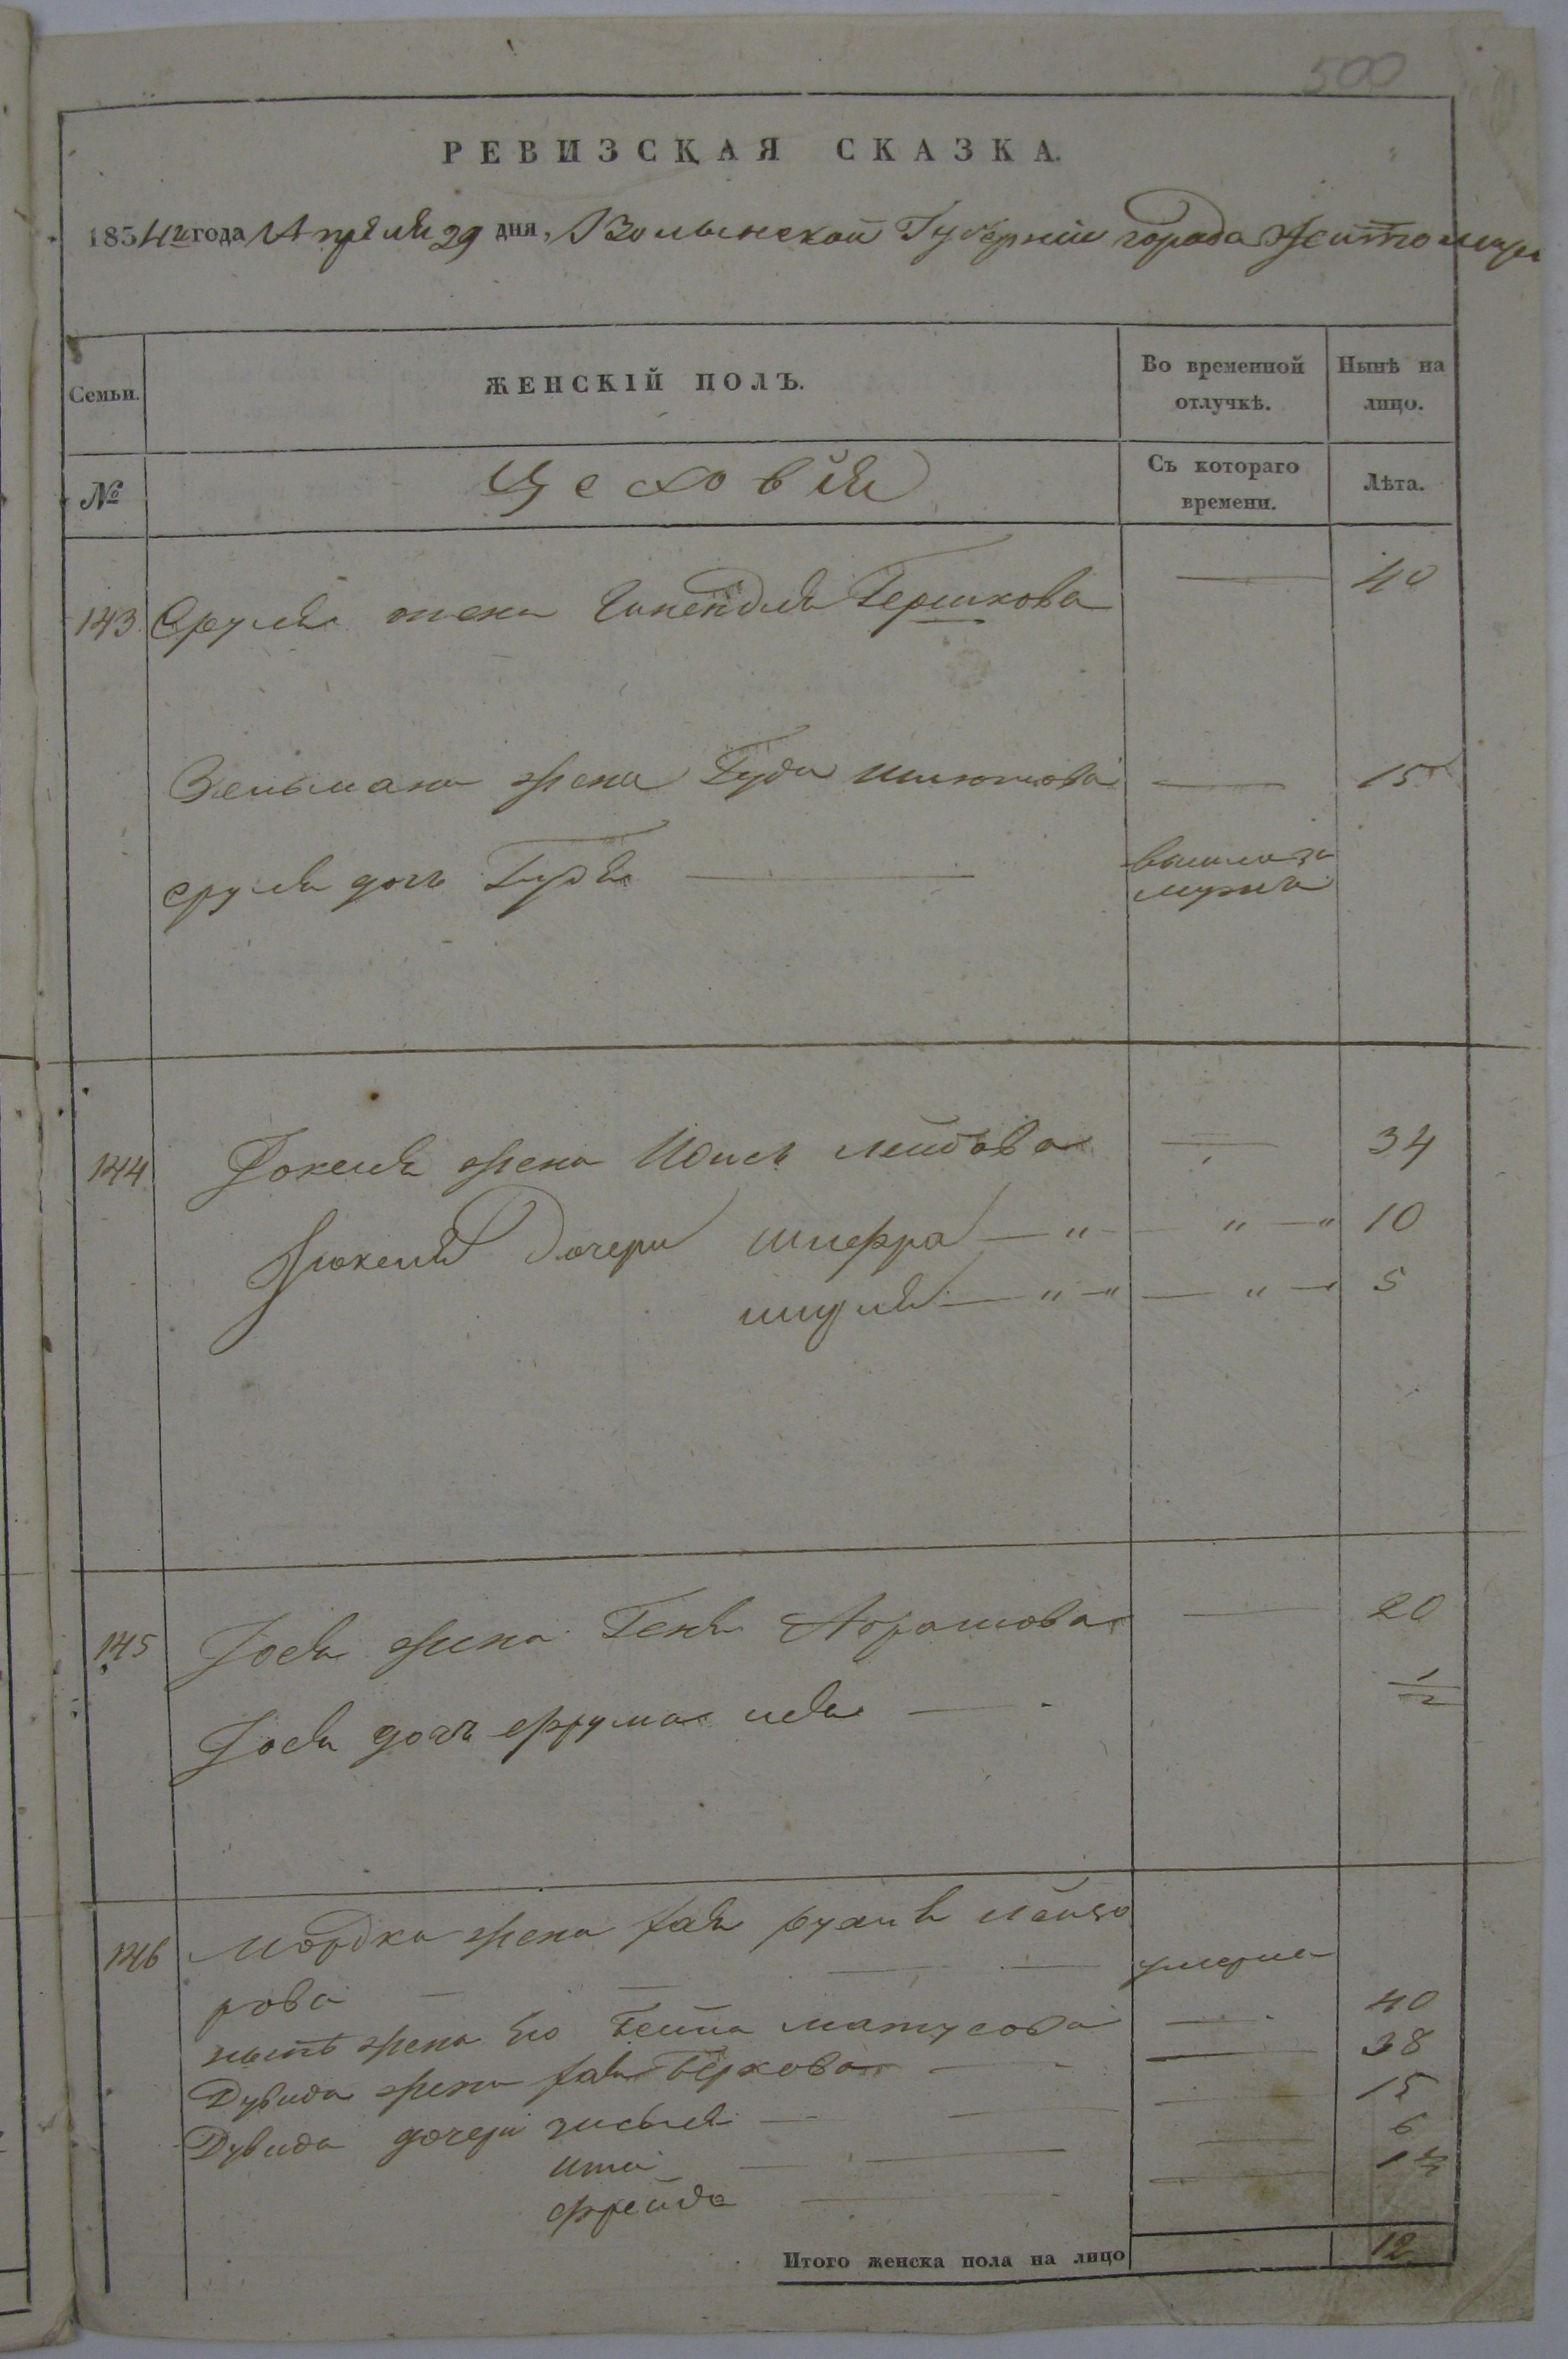 500
РЕВИЗСКАЯ СКАЗКА.
1854го года Апреля 29 дня, Волынской Губернии города Житомира
Семьи. ЖЕНСКІЙ ПОЛЪ. Во временной отлучкѣ. Нынѣ на лицо.
№ Цеховія Съ котораго времени. Лѣта.
143 Сруля жена Гинендля Гершкова — 40
Зельмана жена Гуда — 15
Сруля дочь Гудя — вышла за мужъ
144 жена Лейбова — 34
дочери Шифра — " — " — " 10
— " — " — " — 5
145 Іося жена Геня Абрамова — 20
Іося дочь Фрума — 1/2
146 Мордка жена Хая Рухля Лейзо
рова — умерла
ныне жена его Матусова — 40
Дувида жена Хая Беркова — 38
Дувида дочери Зисля — 15
Ита — 6
Фрейда — 1 1/2
Итого женска пола на лицо 12